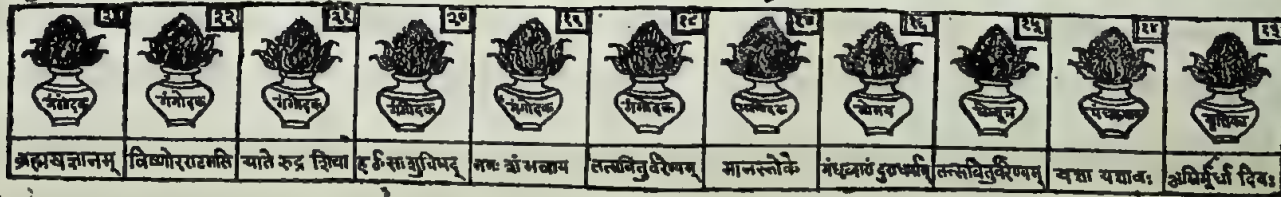 २४ २३ २२ २१ २० १९ १८ १७ १६ १५ १४ १३
गंगोदक गंगोदक गंगोदक गंगोदक गंगोदक गंगोदक गोमय मृत्तिका
ब्रह्मयज्ञानम् विष्णोरराटमसि याते रुद्र शिवा हर्ठसः शुचिषद् नमः शंभवाय तत्सवितुर्वरेण्यम् मानस्तोके गंधद्वारां दुराधर्षाम् तत्सवितुर्वरेण्यम् यज्ञा यज्ञावः अग्निर्मूर्धा दिवः